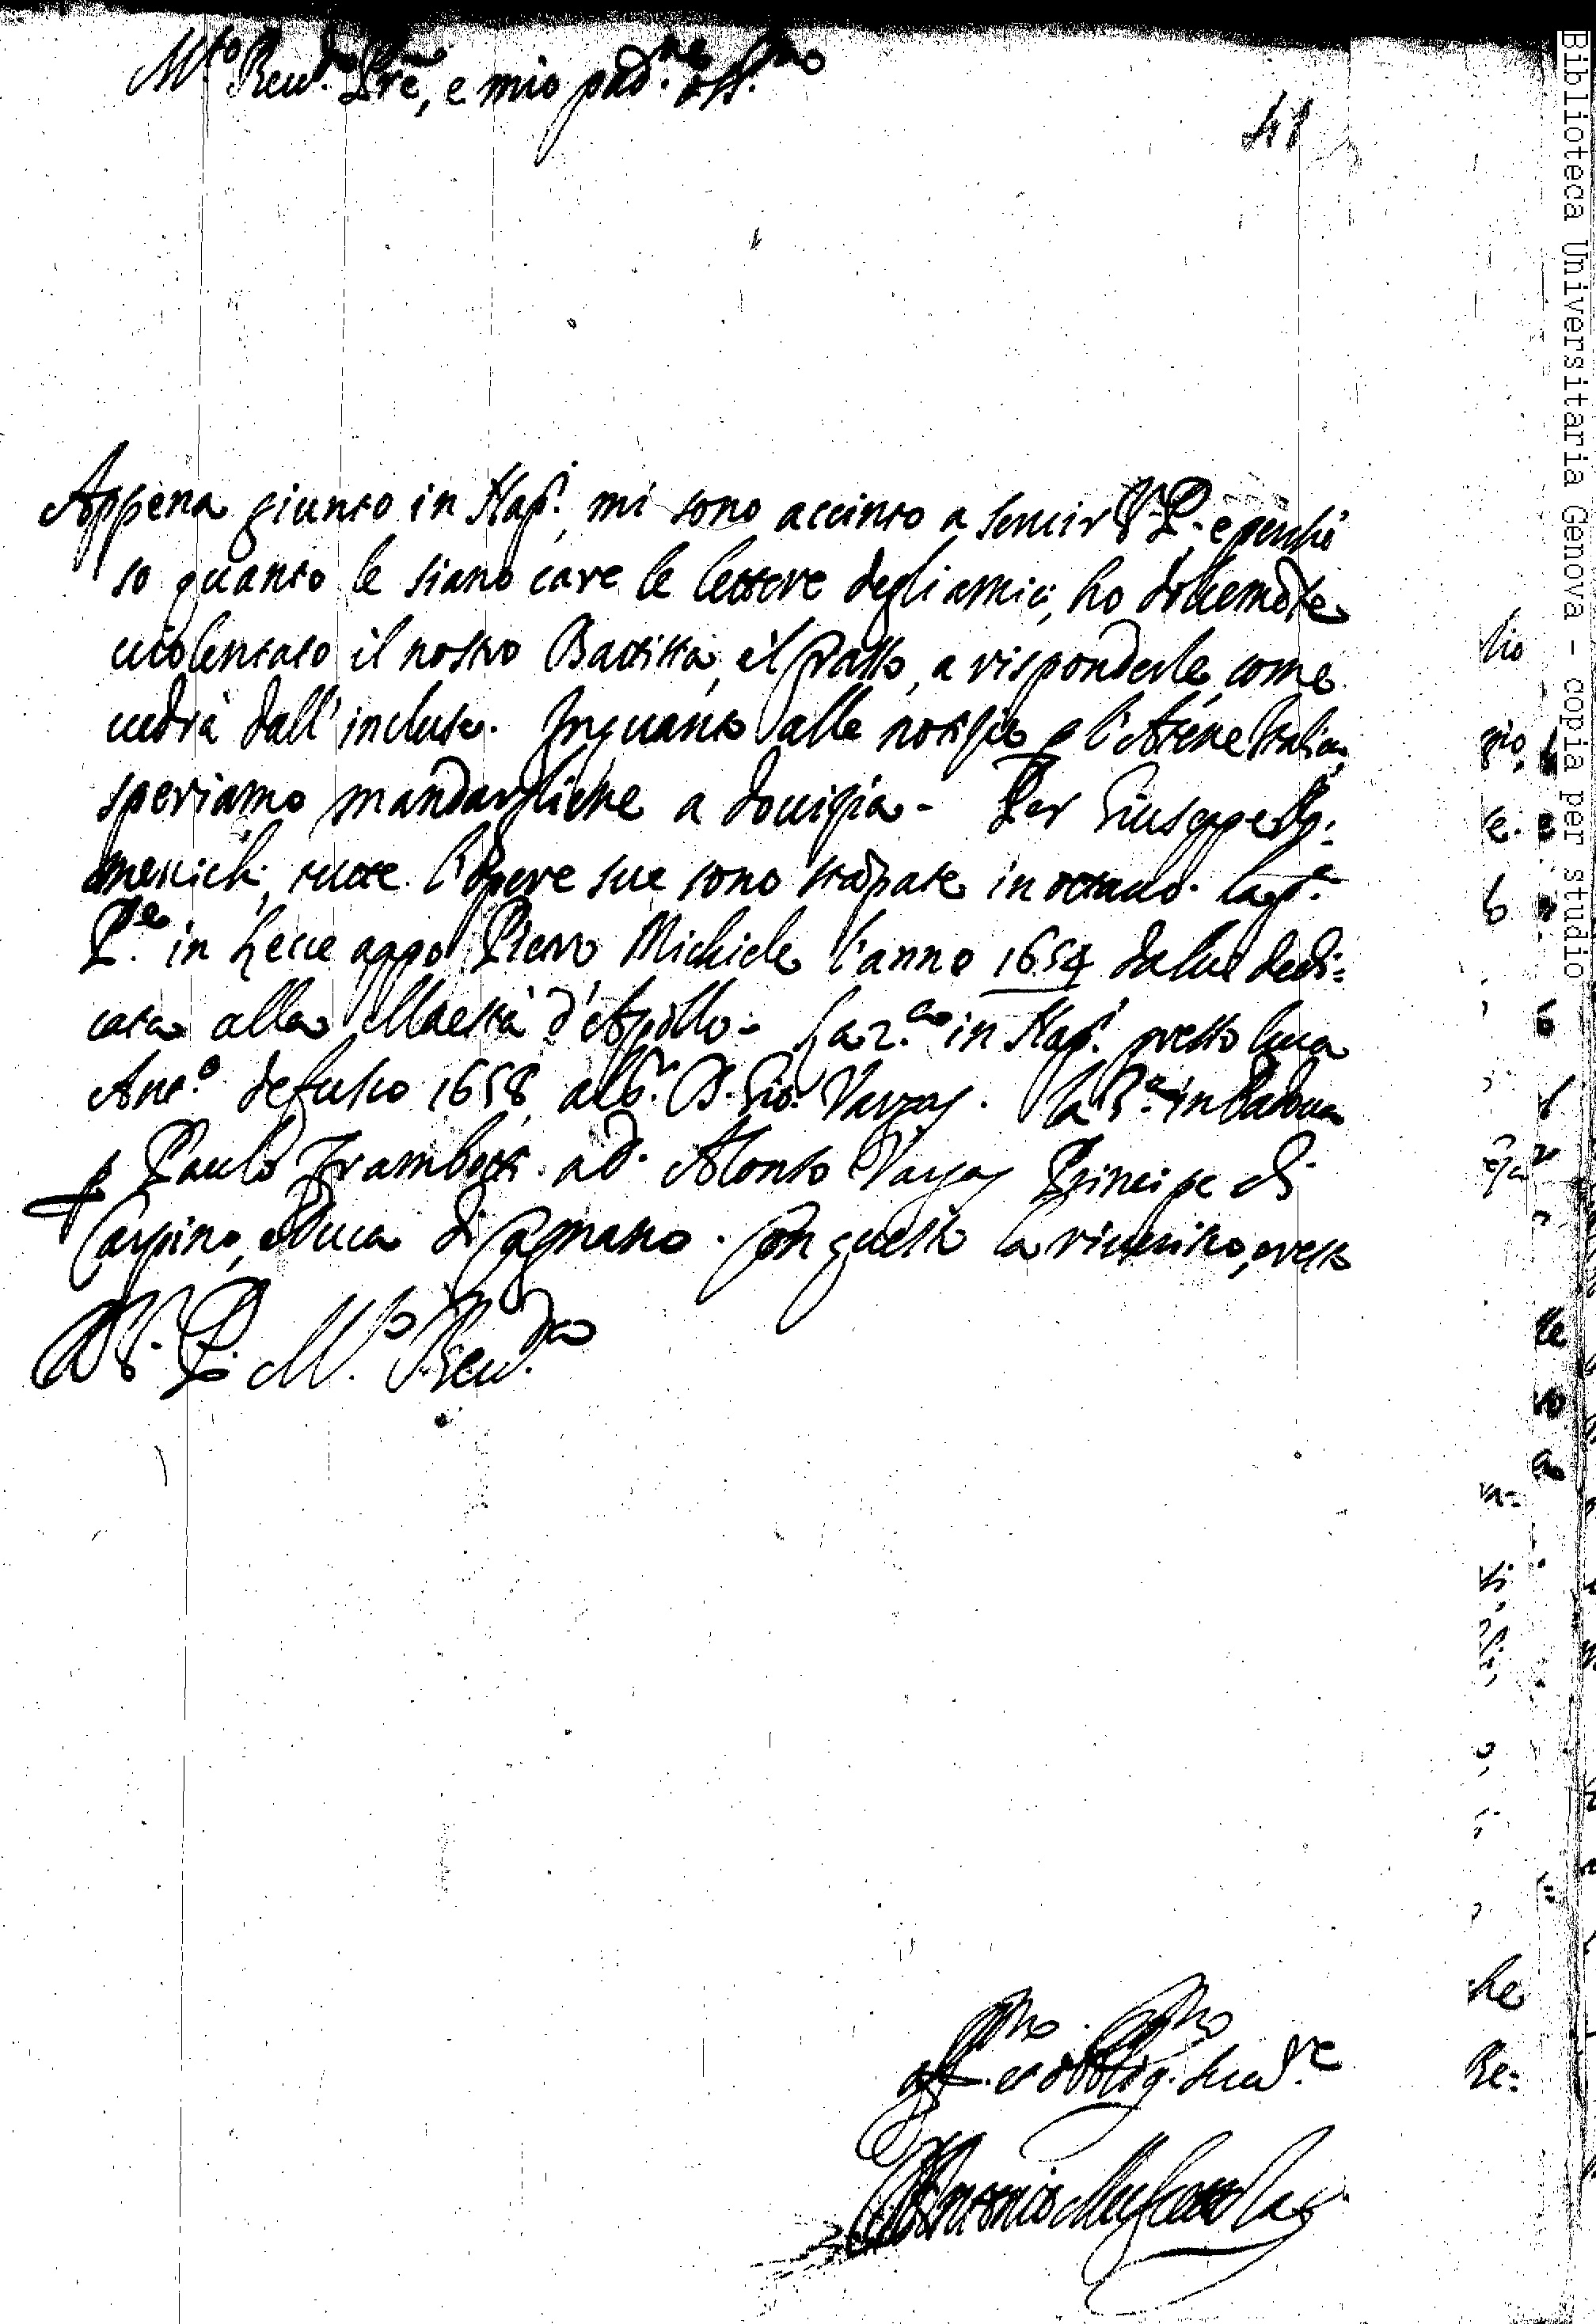 M.to Reu.do P.re, e mio pad.ne oss.mo
41
Appena giunto in Nap.i mi sono accinto a seruir V.P. e perche
so quanto le siano care le lettere degli amici, ho dolcemẽte
uiolentato il nostro Battista, e'l Prasso, a risponderle, come
uedrà dall'incluse. Inquanto alle notizie p l'Atene Italian
speriamo mandargliene a douizia. Per Giuseppe Do:
menichi, tutte l'opere sue sono stãpate in ottauo. La p.a
P.te in Lecce appo Pietro Michiele l'anno 1654 da lui dedi:
cata alla Maestà d'Apollo. La 2.a in Nap.i presso Luca
Ant.o de fusco 1658, al S.r D. Gio: Vargas. La 3.a in Padoua
p Paulo Frambotti ad Alonso Vargas Principe di
Carpino, e Duca di Cagnano. Con questo la riuerisco, e resto
D.V.P. M.to Reu.da
aff.mo et obblig.mo seru.re
Antonio Muscettola
Biblioteca Universitaria Genova - copia per studio